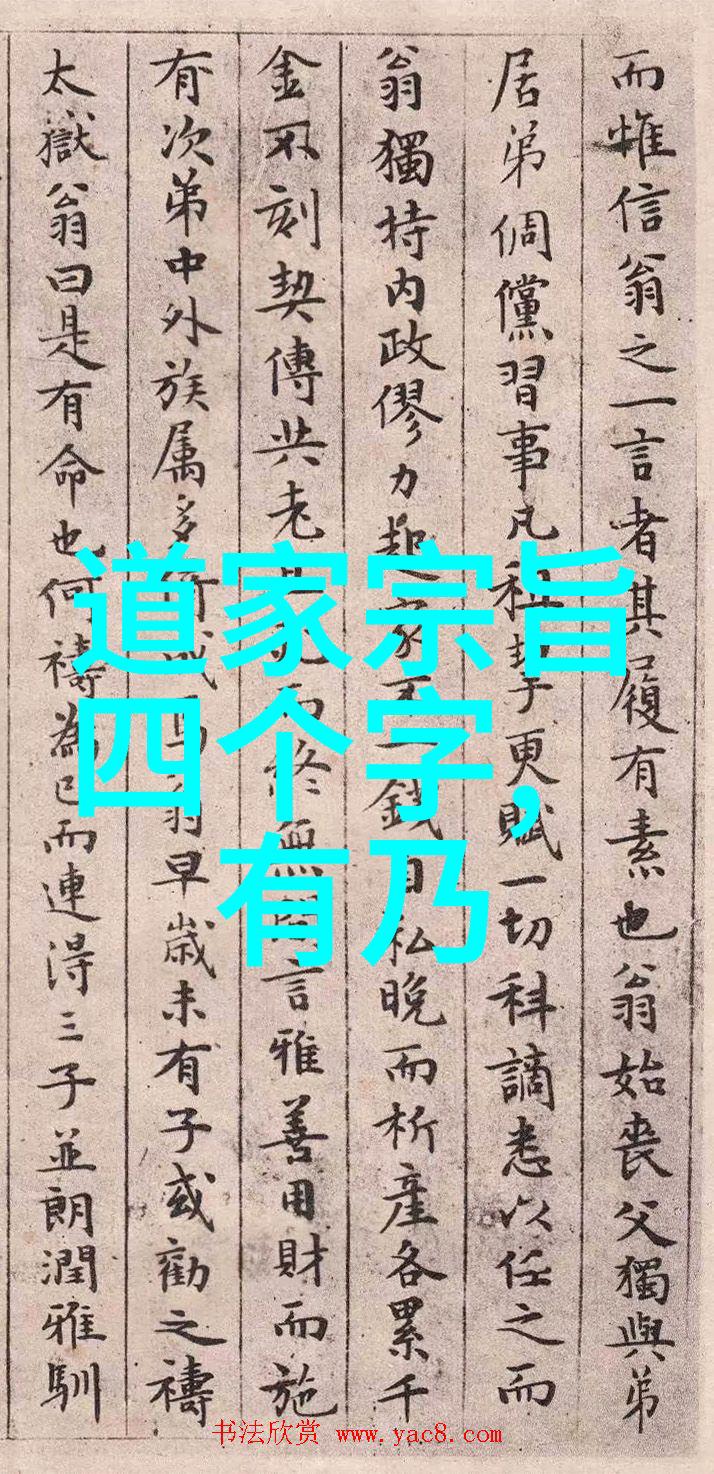 而惟信翁之一言者其履有素也翁始喪父獨與弟
居弟倜儻習事凡租挈更賦一切科謫悉以任之而
翁獨持內政僇力起家不一錢自私晚而析產各累千
金不刻契傳共老而終無間言雅善用財而施
有次弟中外族属多待翁早歲未有子或勸之禱
太嶽翁曰是有命也何禱為已而連得三子並朗潤雅馴
道家宗旨
四个字,
有乃
书法欣赏 www.yac8.com